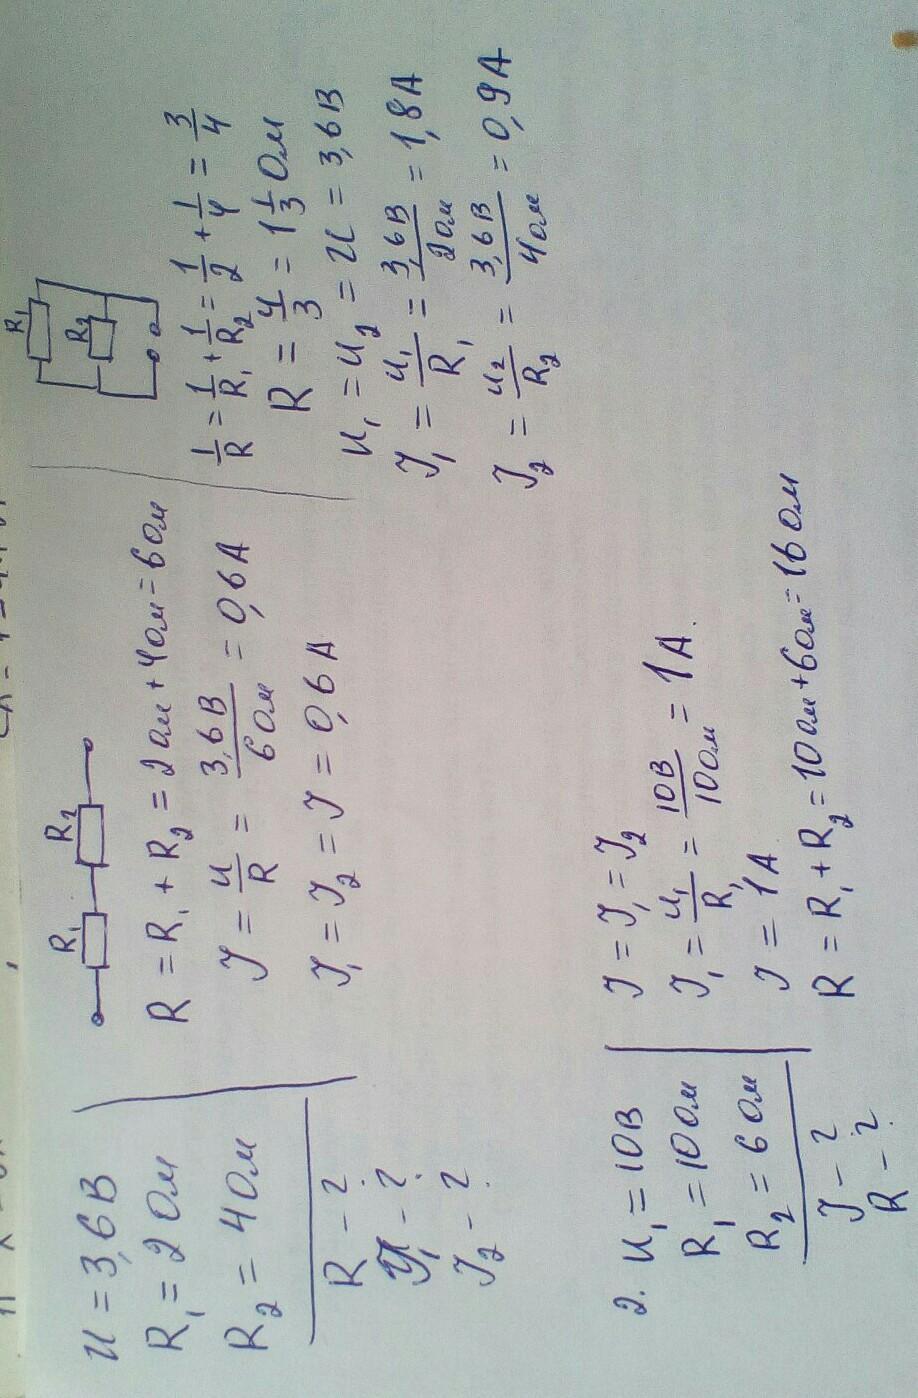 U = 3,6 В
R₁ = 2 Ом
R₂ = 4 Ом
R - ?
J₁ - ?
J₂ - ?
R₁ R₂
R = R₁ + R₂ = 2 Ом + 4 Ом = 6 Ом
J = U/R = 3,6 В/6 Ом = 0,6 А
J₁ = J₂ = J = 0,6 А
R₁
R₂
1/R = 1/R₁ + 1/R₂ = 1/2 + 1/4 = 3/4
R = 4/3 = 1 1/3 Ом
U₁ = U₂ = U = 3,6 В
J₁ = U₁/R₁ = 3,6 В/2 Ом = 1,8 А
J₂ = U₂/R₂ = 3,6 В/4 Ом = 0,9 А
2. U₁ = 10 В
R₁ = 10 Ом
R₂ = 6 Ом
J - ?
R - ?
J = J₁ = J₂
J₁ = U₁/R₁ = 10 В/10 Ом = 1 А.
J = 1 А
R = R₁ + R₂ = 10 Ом + 6 Ом = 16 Ом